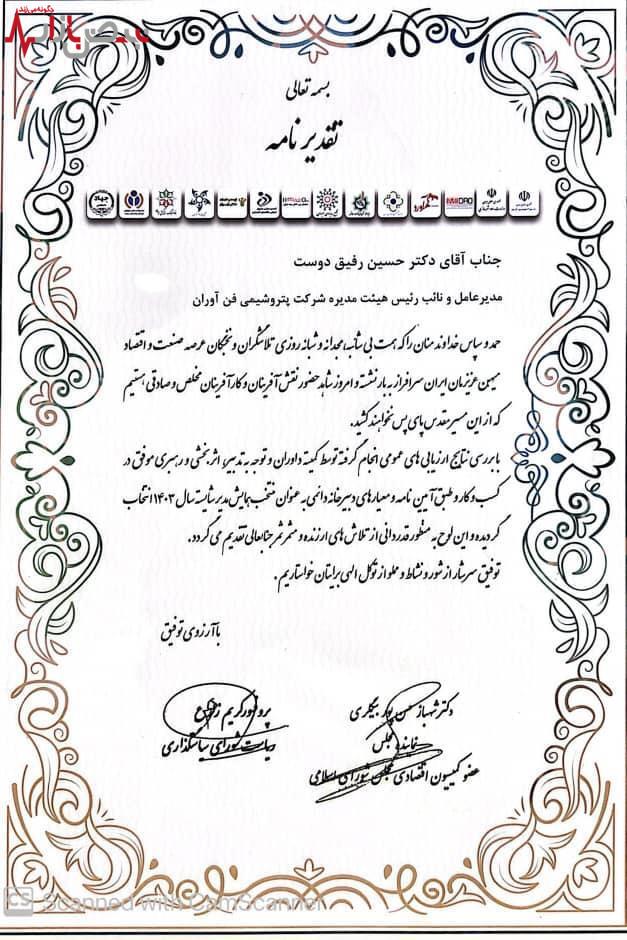 نبض بازار
بسمه تعالی
تقدیر نامه
جهاد
IMIDRO
جناب آقای دکتر حسین رفیق دوست
مدیرعامل و نائب رئیس هیئت مدیره شرکت پتروشیمی فن آوران
حمد و سپاس خداوند منان را که همت بی شائبه مجدانه و شبانه روزی تلاشگران و نخبگان عرصه صنعت و اقتصاد
میهن عزیزمان ایران سرافراز به بار نشسته و امروز شاهد حضور نقش آفرینان و کارآفرینان مخلص و صادقی هستیم
که از این مسیر مقدس پای پس نخواهند کشید.
با بررسی نتایج ارزیابی های عمومی انجام گرفته توسط کمیته داوران و توجه به تدبیر، اثر بخشی و رهبری موفق در
کسب و کار و طبق آئین نامه و معیارهای دبیرخانه دائمی به عنوان منتخب همایش مدیر شایسته سال ۱۴۰۳ انتخاب
گردیده و این لوح به منظور قدردانی از تلاش های ارزنده و مثمر ثمر جنابعالی تقدیم می گردد.
توفیق سرشار از شور و نشاط و مملو از توکل الهی برایتان خواستاریم.
با آرزوی توفیق
دکتر شهباز حسن پور بیگلری
نماینده مجلس
عضو کمیسیون اقتصادی مجلس شورای اسلامی
پروفسور کریم
ریاست شورای سیاستگذاری
CS Scanned with CamScanner